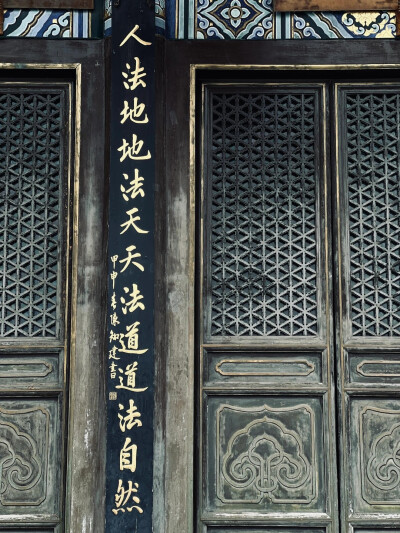 人法地地法天天法道道法自然
甲申春康知建書